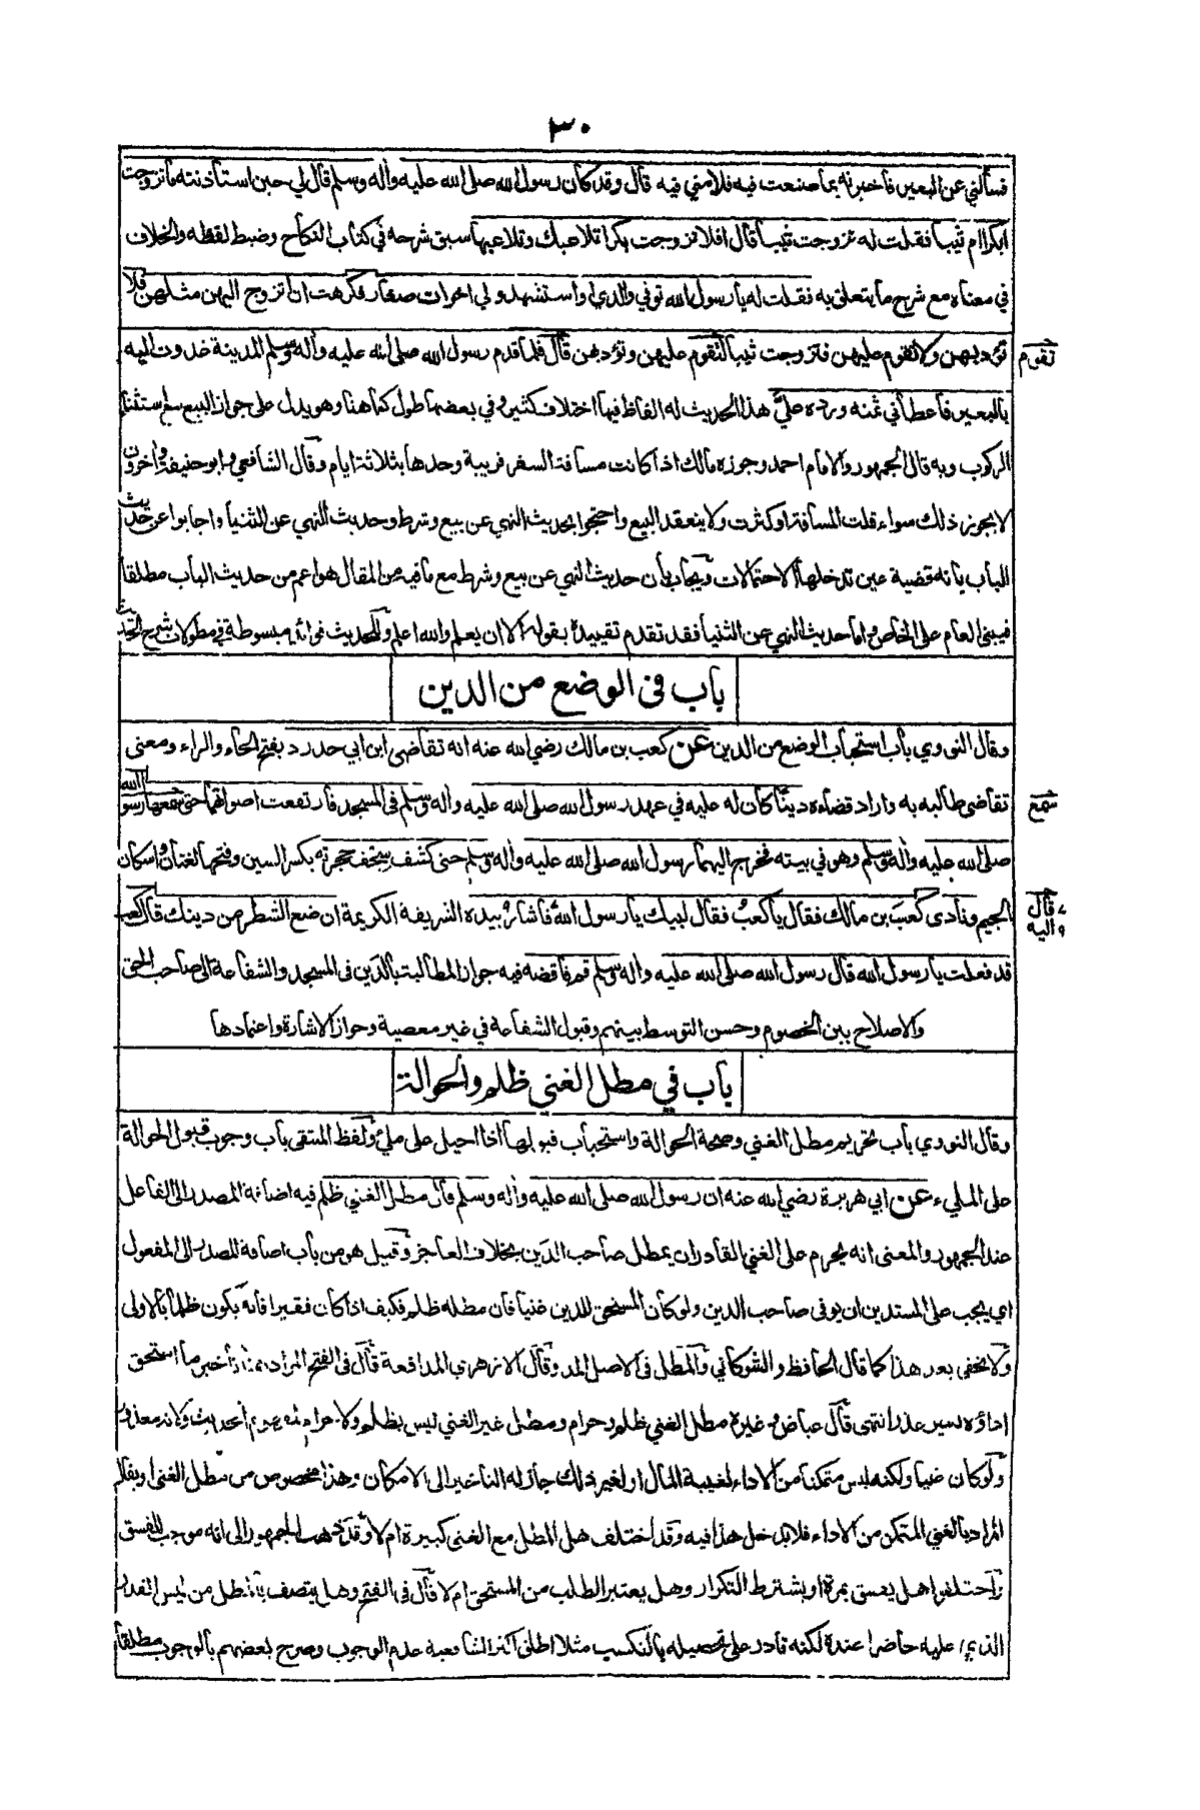 ٣٠
فسألني عن البعير فاخبرته بما صنعت فيه فلامني فيه قال وقد كان رسول الله صلى الله عليه واله وسلم قال لي حين استأذنته ما تزوجت
ابكرا ام ثيبا فقلت له تزوجت ثيبا قال افلا تزوجت بكرا تلاعبك وتلاعبها سبق شرحه في كتاب النكاح وضبط لفظه والخلاف
في معناه مع شرح ما يتعلق به فقلت له يا رسول الله توفي والدي او استشهد ولي اخوات صغار فكرهت ان اتزوج اليهن مثلهن فلا
تؤدبهن ولا تقوم عليهن فتزوجت ثيبا لتقوم عليهن وتؤدبهن قال فلما قدم رسول الله صلى الله عليه واله وسلم المدينة غدوت اليه
تقوم
بالبعير فاعطاني ثمنه ورده عليّ هذا الحديث له الفاظ فيها اختلاف كثير وفي بعضها طول كما هنا وهو يدل على جواز البيع مع استثناء
الركوب وبه قال الجمهور والامام احمد وجوزه مالك اذا كانت مسافة السفر قريبة وحدها بثلاثة ايام وقال الشافعي وابو حنيفة واخرون
لا يجوز ذلك سواء قلت المسافة او كثرت ولا ينعقد البيع واحتجوا بحديث النهي عن بيع وشرط وحديث النهي عن الثنيا واجابوا عن حديث
الباب بانه قضية عين تدخلها الاحتمالات ويجاب بان حديث النهي عن بيع وشرط مع ما فيه من المقال هو اعم من حديث الباب مطلقا
فيبنى العام على الخاص واما حديث النهي عن الثنيا فقد تقدم تقييده بقوله الا ان يعلم والله اعلم وللحديث فوائد مبسوطة في مطولات شرح الحديث
باب فى الوضع من الدين
وقال النووي باب استحباب الوضع من الدين عن كعب بن مالك رضي الله عنه انه تقاضى ابن ابي حدرد بفتح الحاء والراء ومعنى
تقاضى طالبه به واراد قضاءه دينا كان له عليه في عهد رسول الله صلى الله عليه واله وسلم فى المسجد فارتفعت اصواتهما حتى سمعها رسول الله
سمع
صلى الله عليه واله وسلم وهو في بيته فخرج اليهما رسول الله صلى الله عليه واله وسلم حتى كشف سجف حجرته بكسر السين وفتحها لغتان واسكان
الجيم ونادى كعب بن مالك فقال يا كعب فقال لبيك يا رسول الله فاشار بيده الشريفة الكريمة ان ضع الشطر من دينك قال كعب
قال
اليه
قد فعلت يا رسول الله قال رسول الله صلى الله عليه واله وسلم قم فاقضه فيه جواز المطالبة بالدين فى المسجد والشفاعة الى صاحب الحق
والاصلاح بين الخصوم وحسن التوسط بينهم وقبول الشفاعة في غير معصية وجواز الاشارة واعتمادها
باب في مطل الغني ظلم والحوالة
وقال النووي باب تحريم مطل الغني وصحة الحوالة واستحباب قبولها اذا احيل على مليّ ولفظ المنتقى باب وجوب قبول الحوالة
على المليء عن ابي هريرة رضي الله عنه ان رسول الله صلى الله عليه واله وسلم قال مطل الغني ظلم فيه اضافة المصدر الى الفاعل
عند الجمهور والمعنى انه يحرم على الغني القادر ان يمطل صاحب الدين بخلاف العاجز وقيل هو من باب اضافة المصدر الى المفعول
اي يجب على المستدين ان يوفى صاحب الدين ولو كان المستحق للدين غنيا فان مطله ظلم فكيف اذا كان فقيرا فانه يكون ظلما بالاولى
ولا يخفى بعد هذا كما قال الحافظ والشوكاني والمطل فى الاصل المد وقال الازهري المدافعة قال فى الفتح المراد هنا تأخير ما استحق
اداؤه بغير عذر انتهى قال عياض وغيره مطل الغني ظلم وحرام ومطل غير الغني ليس بظلم ولا حرام لمفهوم الحديث ولانه معذور
ولو كان غنيا ولكنه ليس متمكنا من الاداء لغيبة المال او لغير ذلك جاز له التأخير الى الامكان وهذا مخصوص من مطل الغنى او يقال
المراد بالغني المتمكن من الاداء فلا يدخل هذا فيه وقد اختلف هل المطل مع الغنى كبيرة ام لا وقد ذهب الجمهور الى انه موجب للفسق
واختلفوا هل يفسق بمرة او يشترط التكرار وهل يعتبر الطلب من المستحق ام لا قال فى الفتح وهل يتصف بالمطل من ليس القدر
الذي عليه حاضرا عنده لكنه قادر على تحصيله بالتكسب مثلا اطلق اكثر الشافعية عدم الوجوب وصرح بعضهم بالوجوب مطلقا